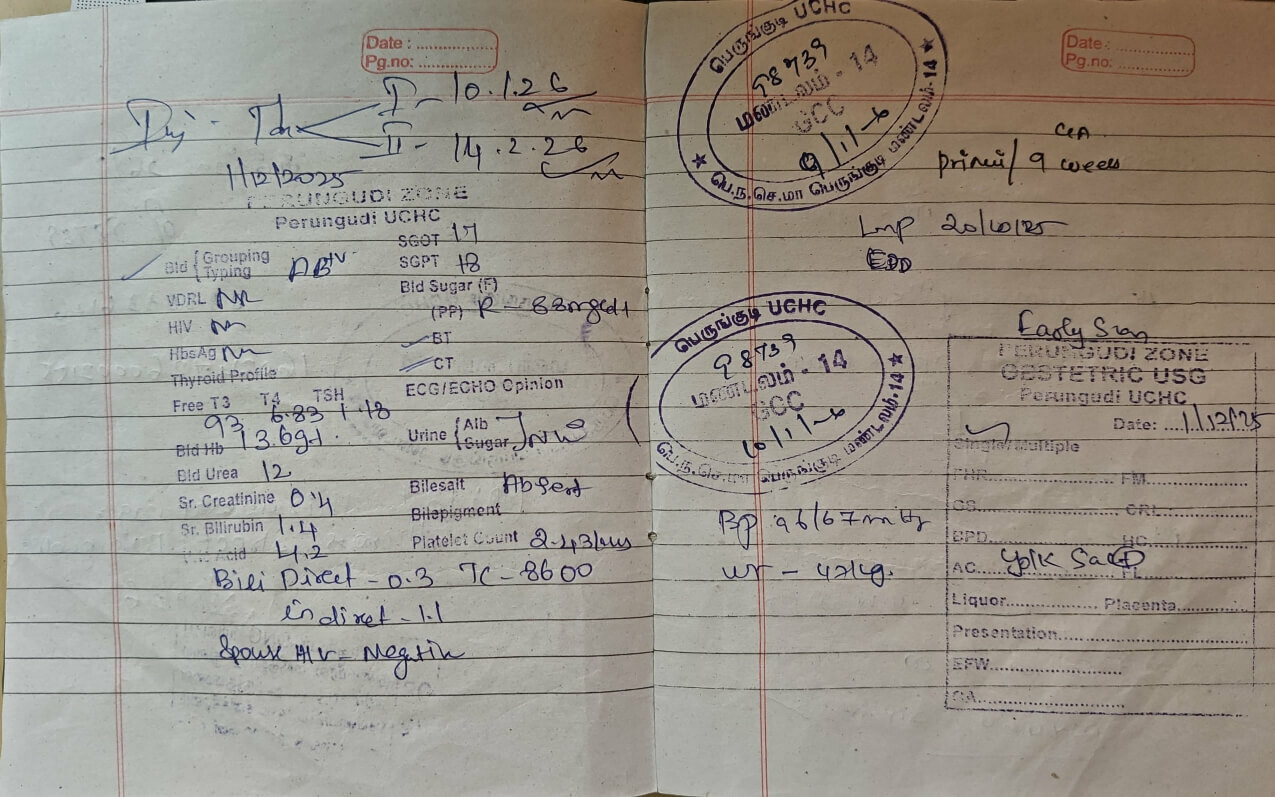 Date : ..................
Pg.no: ..................
Inj - Td
I - 10.1.26
II - 14.2.26
1/12/2025
PERUNGUDI ZONE
Perungudi UCHC
Bld { Grouping
Typing
AB+v
VDRL NR
HIV
HbsAg
Thyroid Profile
Free T3 T4 TSH
93 6.83 1.18
Bld Hb 13.6gd.
Bld Urea 12
Sr. Creatinine 0.4
Sr. Bilirubin 1.4
Acid 4.2
SGOT 17
SGPT 18
Bld Sugar (F)
(PP) R - 88
BT
CT
ECG/ECHO Opinion
Urine { Alb
Sugar
Nil
Bilesalt Absent
Bilepigment
Platelet Count 2.43
Bili Direct - 0.3 TC - 8600
indirect - 1.1
Spouse HIV - Negative
Date: ..................
Pg.no: ..................
பெருங்குடி UCHC
98739
மண்டலம் - 14
GCC
பெ.ந.செ.மா பெருங்குடி மண்டலம்-14
primi/ 9 weeks
Lmp 20/10/25
EDD
பெருங்குடி UCHC
98739
மண்டலம் - 14
GCC
பெ.ந.செ.மா பெருங்குடி மண்டலம்-14
BP 96/67
wt - 47kg.
Early Scan
PERUNGUDI ZONE
OBSTETRIC USG
Perungudi UCHC
Date: 1/12/25
Single/Multiple
FHR.................... FM....................
GS.................... CRL....................
BPD.................... HC....................
AC.................... FL....................
Yolk Sac
Liquor.................... Placenta....................
Presentation....................
EFW....................
GA....................